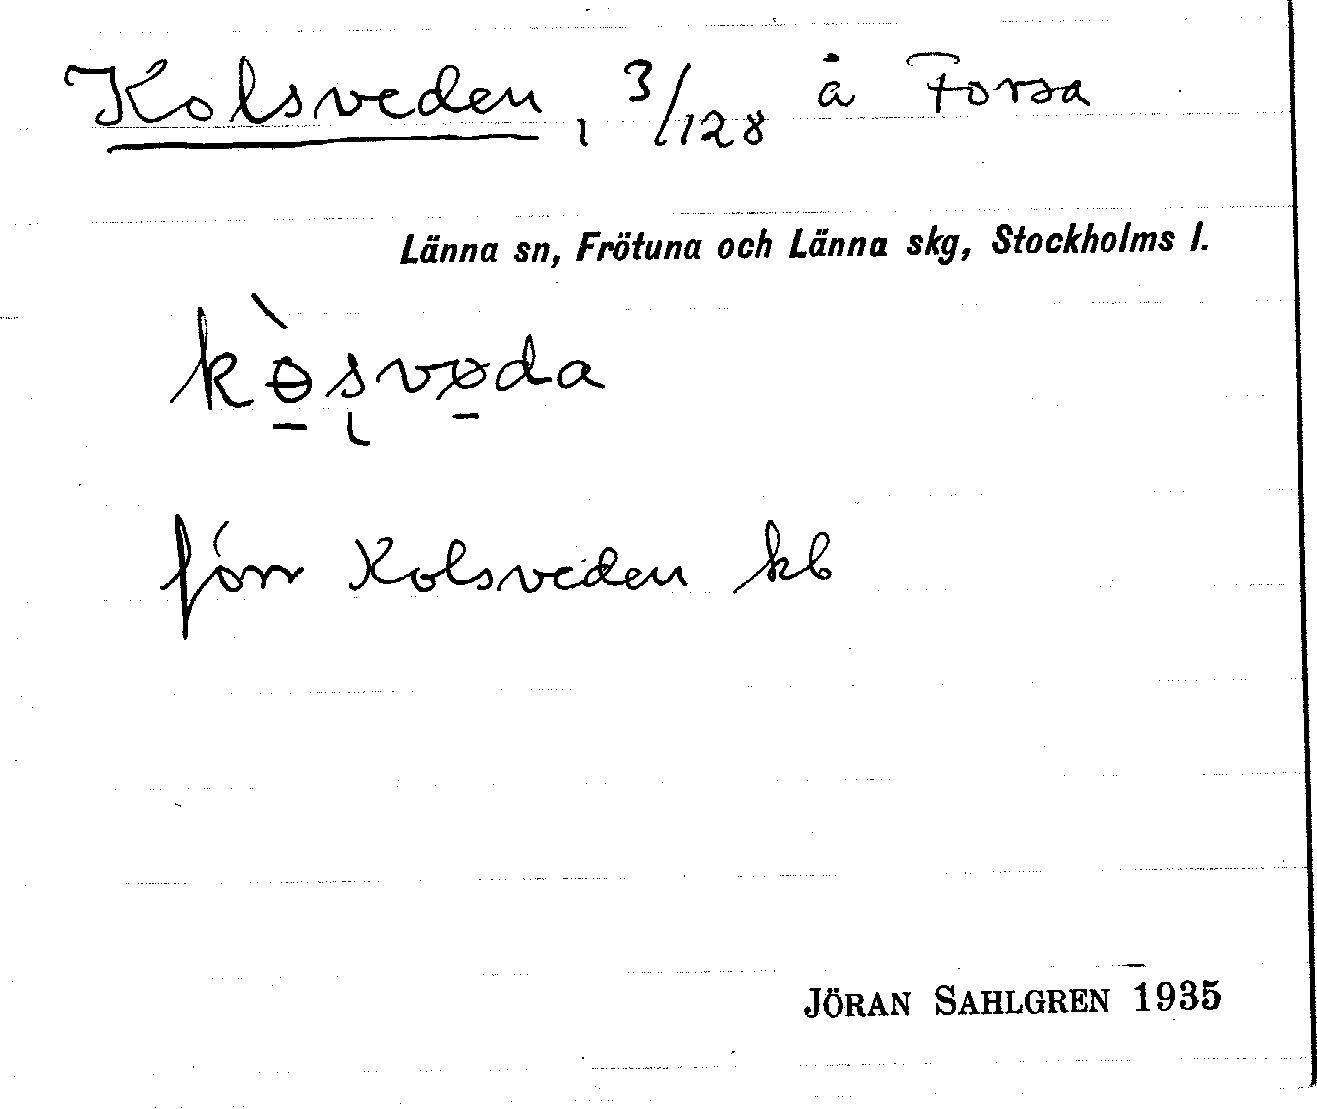 Kolsveden, 3/128 å Forsa
Länna sn, Frötuna och Länna skg, Stockholms l.
kɵ̠̀ʂvø̠da
förr Kolsveden kb
JÖRAN SAHLGREN 1935